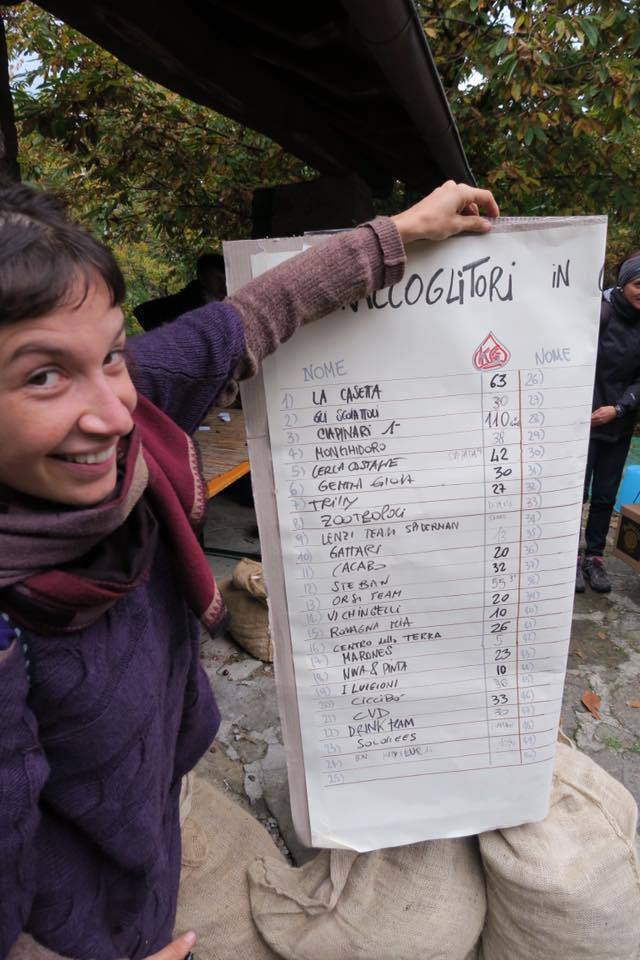 RACCOGLITORI IN
NOME KG NOME
1) LA CASETTA 63 26)
2) GLI SCOIATTOLI 30 27)
3) CIAPINARI 1- 110 28)
4) MONGHIDORO 38 29)
5) CERCA CASTAGNE 42 30)
6) GEMINI GIOVA 30 31)
7) TRILLY 27
8) ZOOTROPOLI 33)
9) LENZI TEAM SPIDERMAN 34)
10) GATTARI
11) CACABO 20 36)
12) STEBAN 32 37)
13) ORSI TEAM 55 38)
14) VICHINGELLI 20 39)
15) ROMAGNA MIA 10
16) CENTRO della TERRA 26
17) MARONES 5
18) NINA & PINTA 23
19) I LUIGIONI 10
20) CICCIBO' 30
21) CVD 33
22) DRINK TEAM 30
23) SOLDIERS
24)
25)